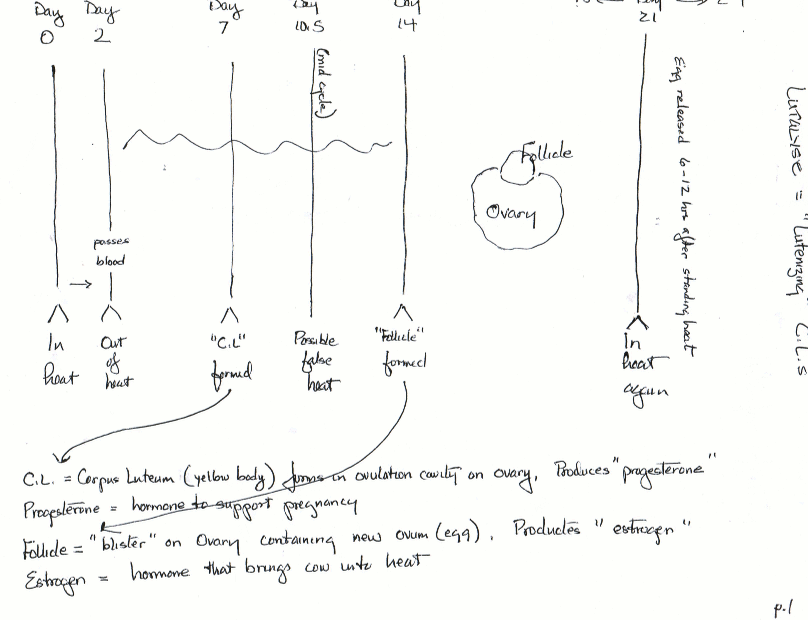 Day
0
Day
2
Day
7
Day
10.5
Day
14
Day
21
(mid cycle)
Follicle
Ovary
passes
blood
→
In
heat
Out
of
heat
"C.L"
formed
Possible
false
heat
"Follicle"
formed
In
heat
again
Egg released 6-12 hrs after standing heat
Lutalyse = "Lutenizing" C.L.s
C.L. = Corpus Luteum (yellow body) forms in ovulation cavity on ovary. Produces "progesterone"
Progesterone = hormone to support pregnancy
Follicle = "blister" on Ovary containing new ovum (egg). Productes "estrogen"
Estrogen = hormone that brings cow into heat
p.1